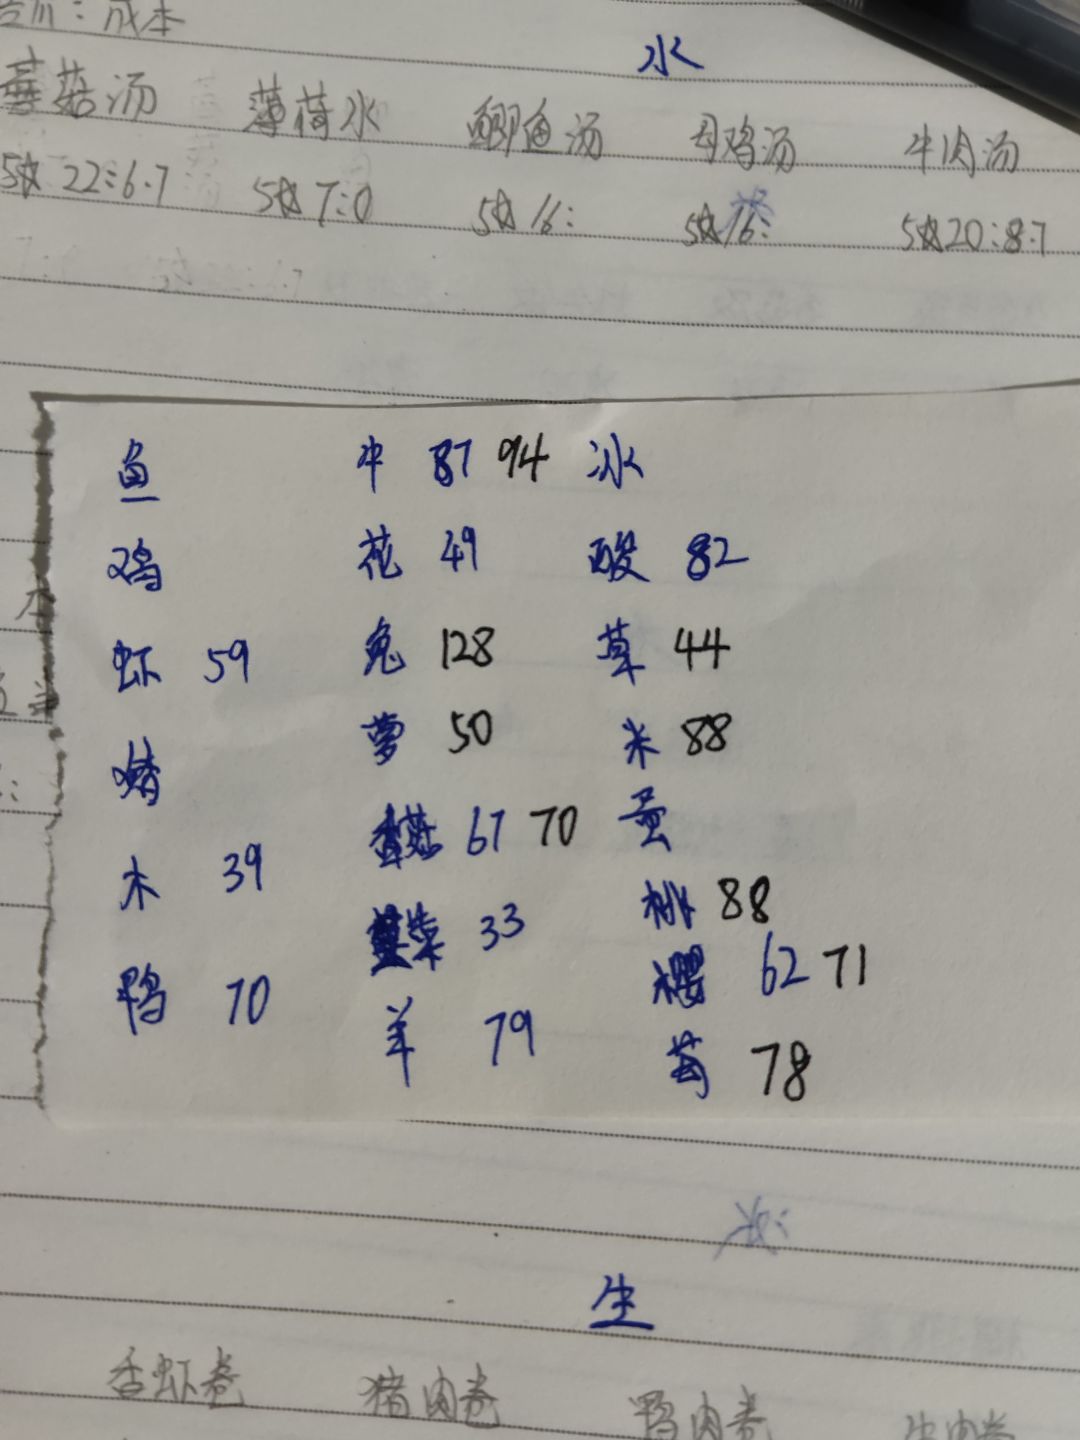 ：成本
水
蘑菇汤 薄荷水 鲫鱼汤 母鸡汤 牛肉汤
5☆ 22:6.7 5☆ 7:0 5☆ 16: 5☆ 16: 5☆ 20:8.7
鱼 牛 87 94 冰
鸡 花 49 酸 82
虾 59 兔 128 草 44
萝 50 米 88
猪 香菇 67 70 蛋
木 39 菜 33 桃 88
鸭 70 樱 62 71
羊 79 莓 78
本
生
香虾卷 猪肉卷 鸭肉卷 牛肉卷